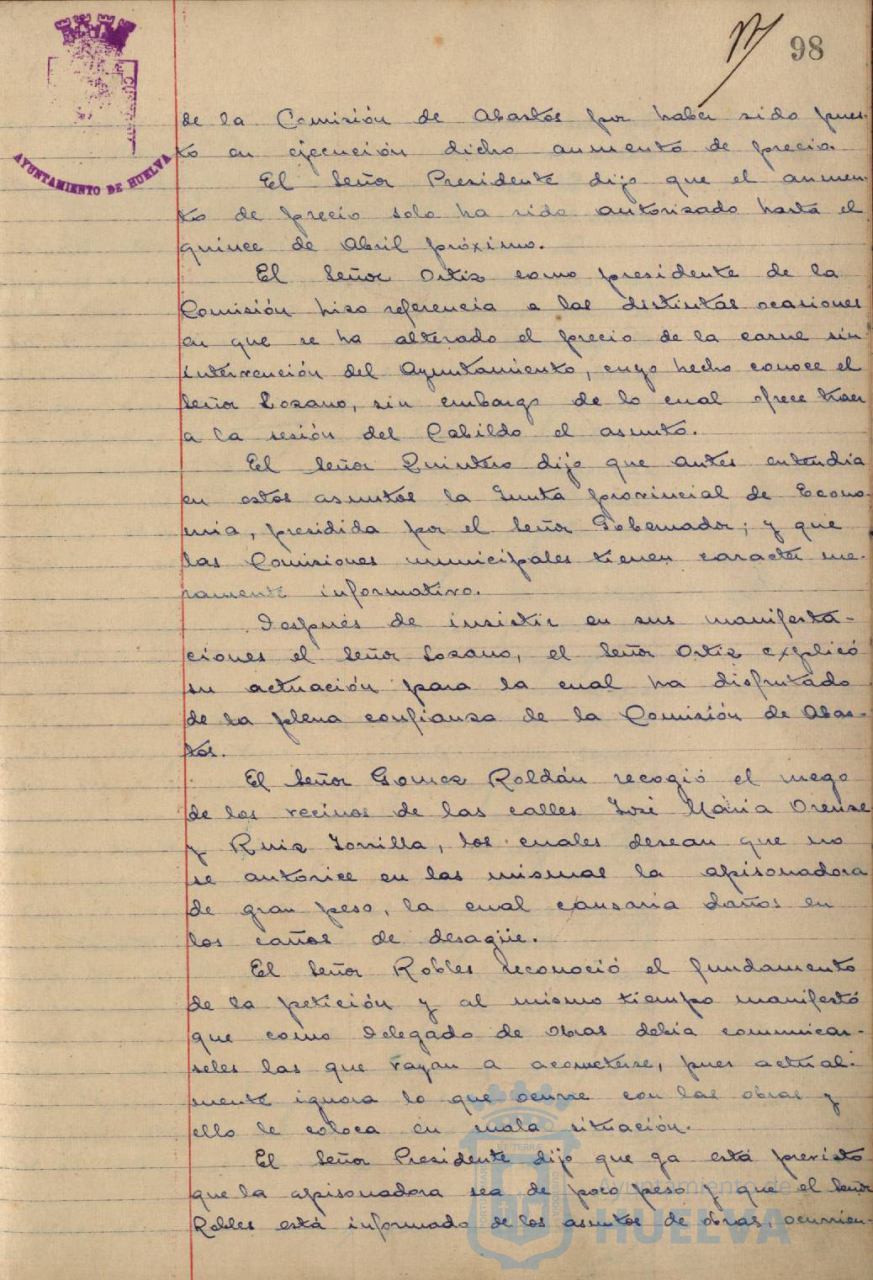 98
AYUNTAMIENTO DE HUELVA
de la Comisión de Abastos por haber sido pues-
to en ejecución dicho aumento de precio.
El Señor Presidente dijo que el aumen-
to de precio solo ha sido autorizado hasta el
quince de Abril próximo.
El Señor Ortiz como presidente de la
Comisión hizo referencia a las distintas ocasiones
en que se ha alterado el precio de la carne sin
intervención del Ayuntamiento, cuyo hecho conoce el
Señor Lozano, sin embargo de lo cual ofrece traer
a la sesión del Cabildo el asunto.
El Señor Quintero dijo que antes entendia
en estos asuntos la Junta provincial de Econo-
mia, presidida por el Señor Gobernador; y que
las Comisiones municipales tienen caracter me-
ramente informativo.
Después de insistir en sus manifesta-
ciones el Señor Lozano, el Señor Ortiz explicó
su actuación para la cual ha disfrutado
de la plena confianza de la Comisión de Abas-
tos.
El Señor Gomez Roldán recogió el ruego
de los vecinos de las calles José Maria Orense
y Ruiz Zorrilla, los cuales desean que no
se autorice en las mismas la apisonadora
de gran peso, la cual causaria daños en
los caños de desagüe.
El Señor Robles reconoció el fundamento
de la petición y al mismo tiempo manifestó
que como Delegado de Obras debia comunicar-
seles las que vayan a acometerse, pues actual-
mente ignora lo que ocurre con las obras y
ello le coloca en mala situación.
El Señor Presidente dijo que ya está previsto
que la apisonadora sea de poco peso y que el Señor
Robles está informado de los asuntos de obras, ocurrien-
Ayuntamiento de
HUELVA